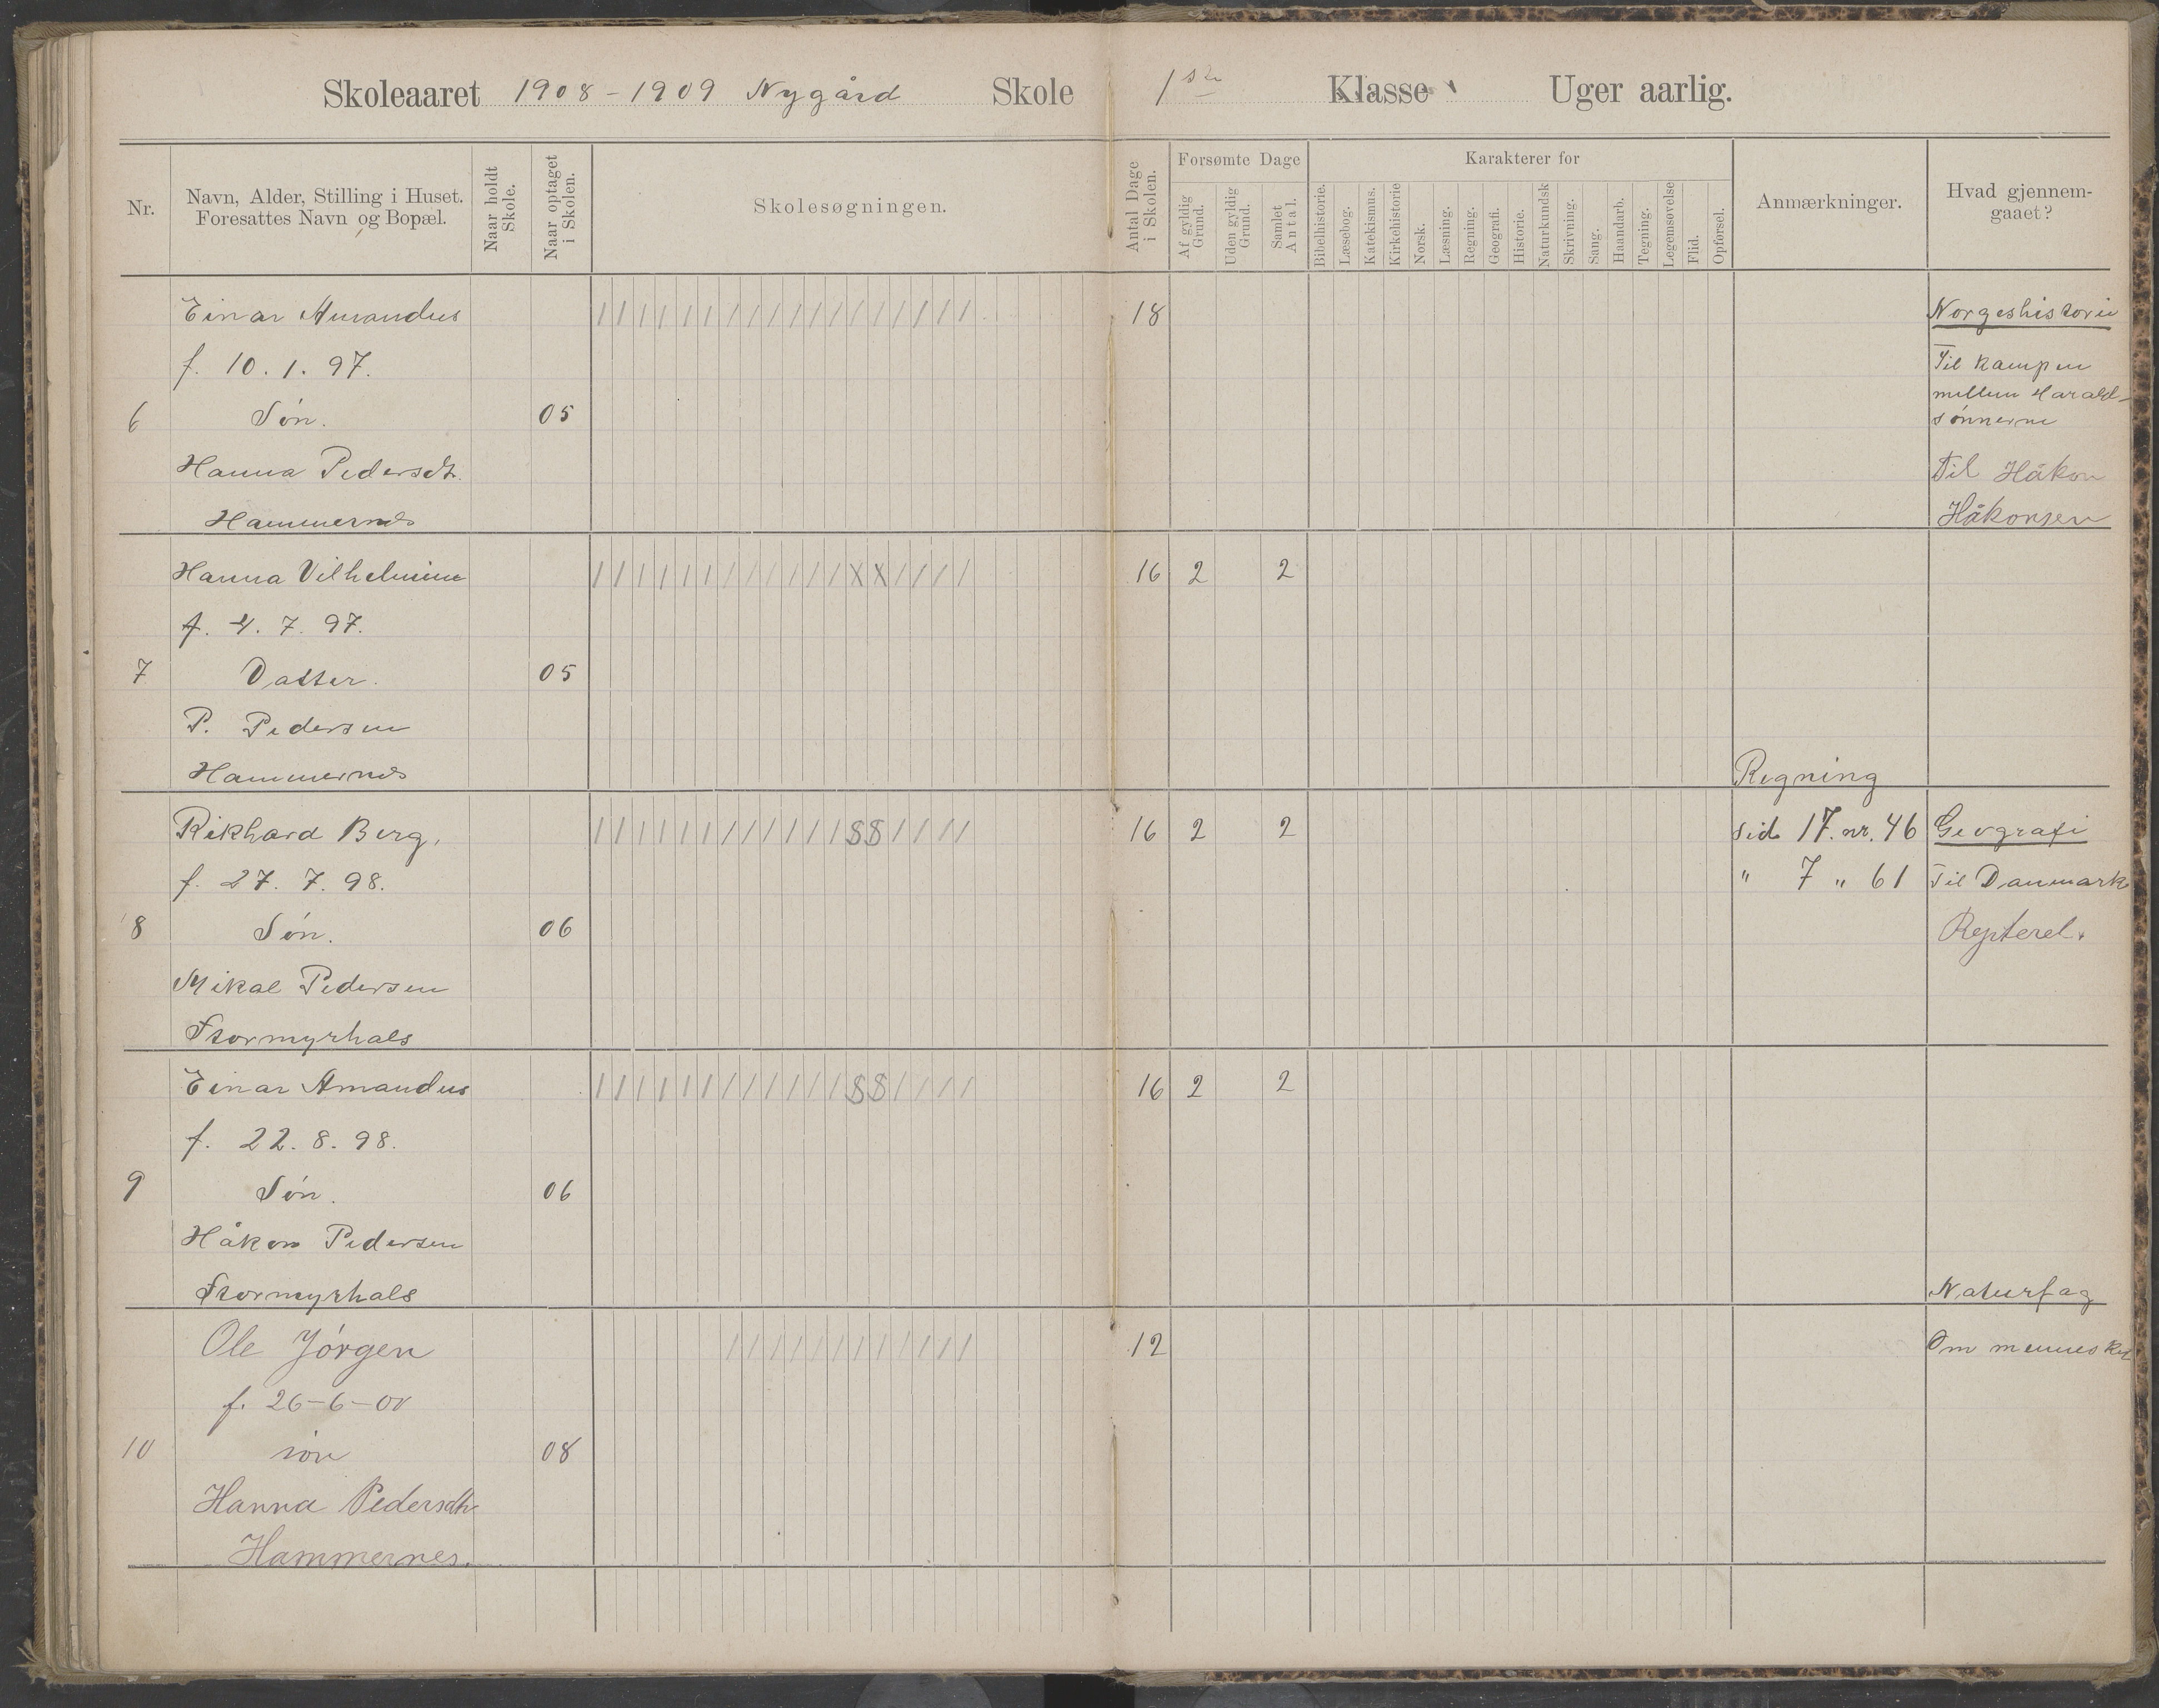 Skoleaaret 1908-1909 Nygård Skole 1ste Klasse Uger aarlig.
Nr.
Navn, Alder, Stilling i Huset.
Foresattes Navn og Bopæl.
Naar holdt
Skole.
Naar optaget
i Skolen.
Skolesøgningen.
Antal Dage
i Skolen.
Forsømte Dage
Af gyldig
Grund.
Uden gyldig
Grund.
Samlet
Antal.
Karakterer for
Bibelhistorie.
Læsebog.
Katekismus.
Kirkehistorie
Norsk.
Læsning.
Regning.
Geografi.
Historie.
Naturkundsk
Skrivning.
Sang.
Haandarb.
Tegning.
Legemsøvelse
Flid.
Opførsel.
Anmærkninger.
Hvad gjennem-
gaaet?
Einar Amandus / / / / / / / / / / / / / / / / / / 18 Norgeshistorie
f. 10. 1. 97. Til kampen
mellem Harald-
6 Søn. 05 sønnerne
Hanna Pedersdt. Til Håkon
Hammernes Håkonsen
Hanna Vilhelmine / / / / / / / / / / / / X X / / / / 16 2 2
f. 4. 7. 97.
7 Datter. 05
P. Pedersen
Hammernes Regning
Rikhard Berg, / / / / / / / / / / / / S S / / / / 16 2 2 sid 17. nr. 46 Geografi
f. 27. 7. 98. " 7 " 61 Til Danmark
8 Søn. 06 Repterel.
Mikal Pedersen
Stormyrhals
Einar Amandus / / / / / / / / / / / / S S / / / / 16 2 2
f. 22. 8. 98.
9 Søn. 06
Håkon Pedersen
Stormyrhals Naturfag
Ole Jörgen / / / / / / / / / / / / 12 Om mennesket
f. 26-6-00
10 søn 08
Hanna Pedersdtr
Hammernes.